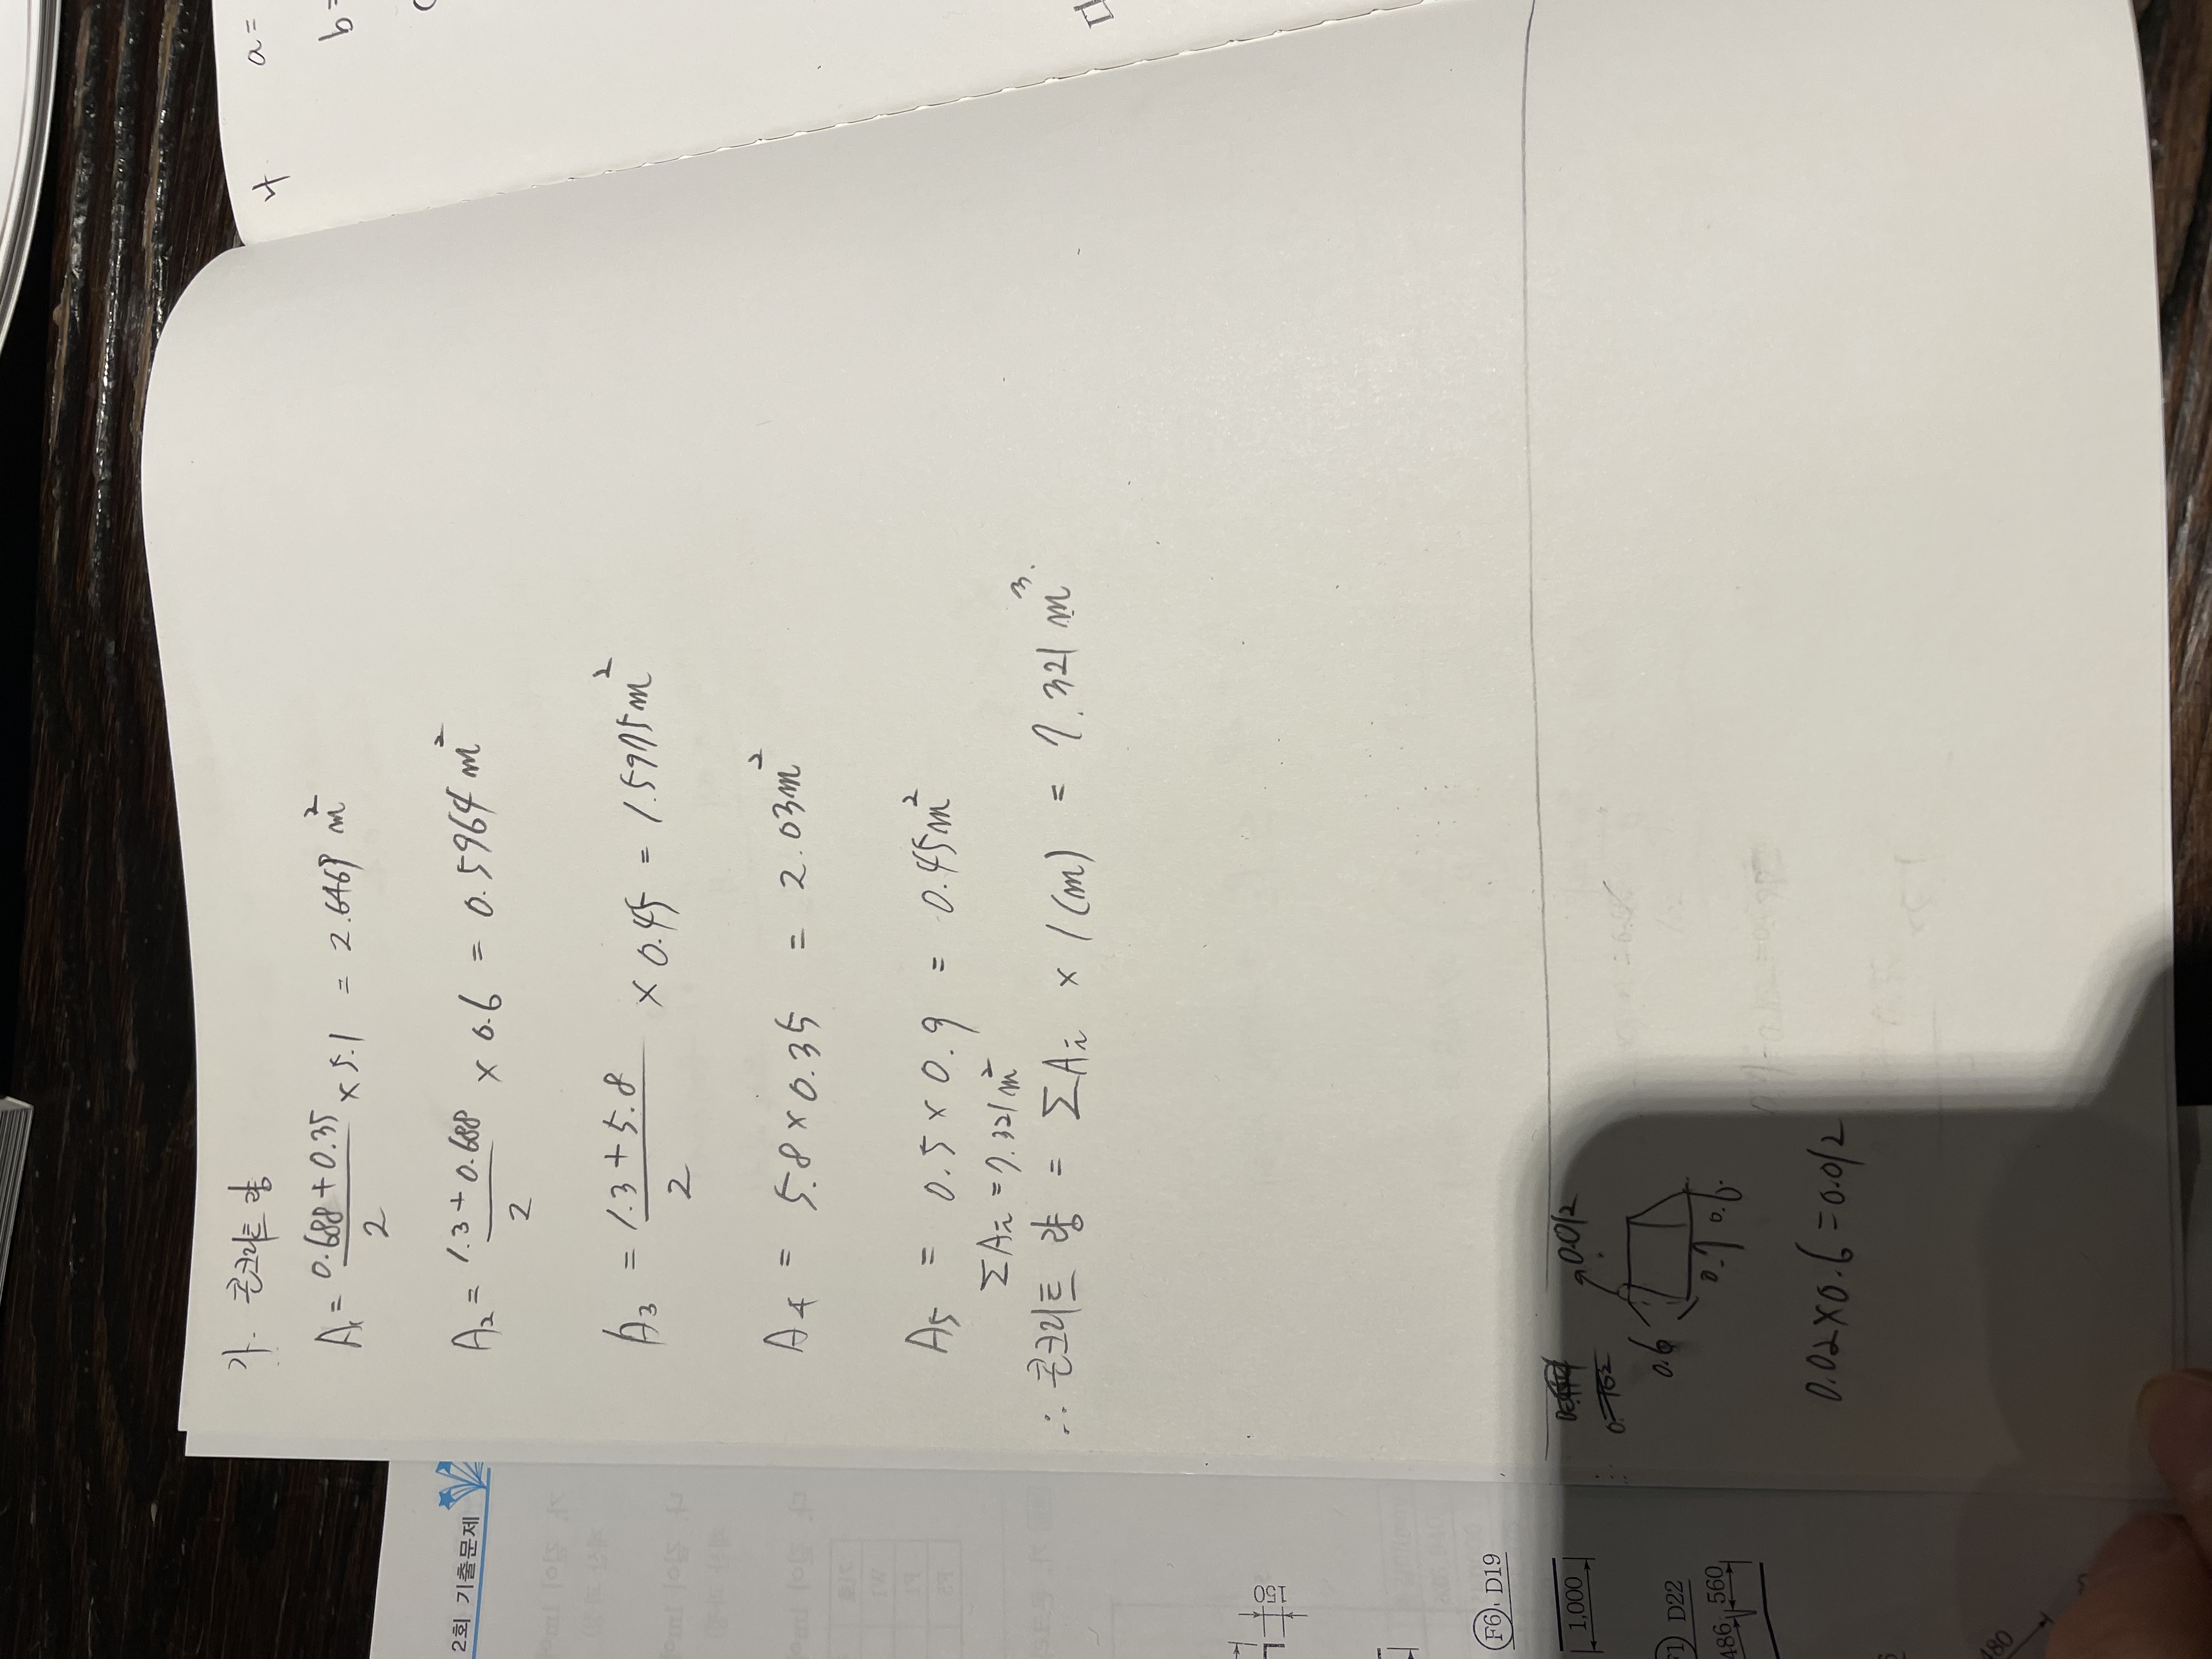 가. 콘크리트 량
A₁ = (0.688 + 0.35)/2 × 5.1 = 2.6469 m²
A₂ = (1.3 + 0.688)/2 × 0.6 = 0.5964 m²
A₃ = (1.3 + 5.8)/2 × 0.45 = 1.5975 m²
A₄ = 5.8 × 0.35 = 2.03 m²
A₅ = 0.5 × 0.9 = 0.45 m²
ΣAi = 7.321 m²
∴ 콘크리트 량 = ΣAi × 1(m) = 7.321 m³.
0.012
0.6
0.7
0.02 × 0.6 = 0.012
a =
b =
2회 기출문제
150
F6 D19
1,000
D22
486 560
480